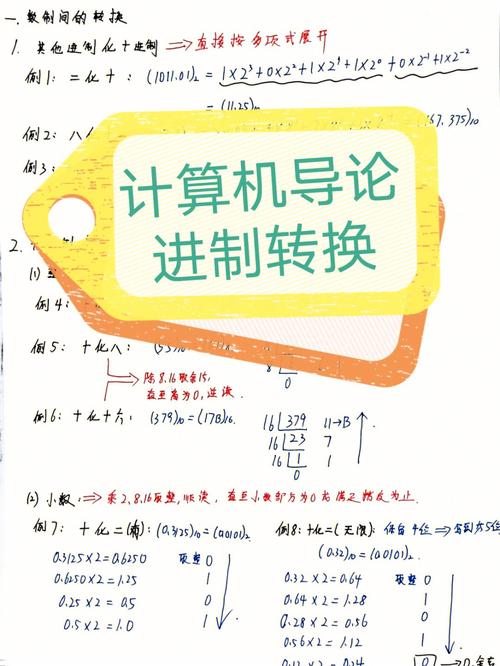 一.数制间的转换
1. 其他进制化十进制 ⇒ 直接按多项式展开
例1: 二化十: (1011.01)₂ = 1×2³+0×2²+1×2¹+1×2⁰+0×2⁻¹+1×2⁻²
= (11.25)₁₀
例2: 八
67.375)₁₀
例3:
计算机导论
进制转换
2.
(1)
例4:
例5: 十化八:
8
0
除8.16取余法,
直至商为0,逆读.
例6: 十化十六: (379)₁₀=(17B)₁₆.
16 379 11→B
16 23 7
16 1 1
0
(2) 小数: ⇒ 乘2.8.16取整,顺读, 直至小数部分为0或满足精度为止.
例7: 十化二(有限): (0.3125)₁₀=(0.0101)₂
0.3125×2=0.6250 取整 0
0.6250×2=1.25 1
0.25×2=0.5 0
0.5×2=1.0 1
例8: 十化二(无限): 保留4位 ⇒ 写到第5位
(0.32)₁₀=(0.0101)₂
0.32×2=0.64 取整 0
0.64×2=1.28 1
0.28×2=0.56 0
0.56×2=1.12 1
0.12×2=0.24 0